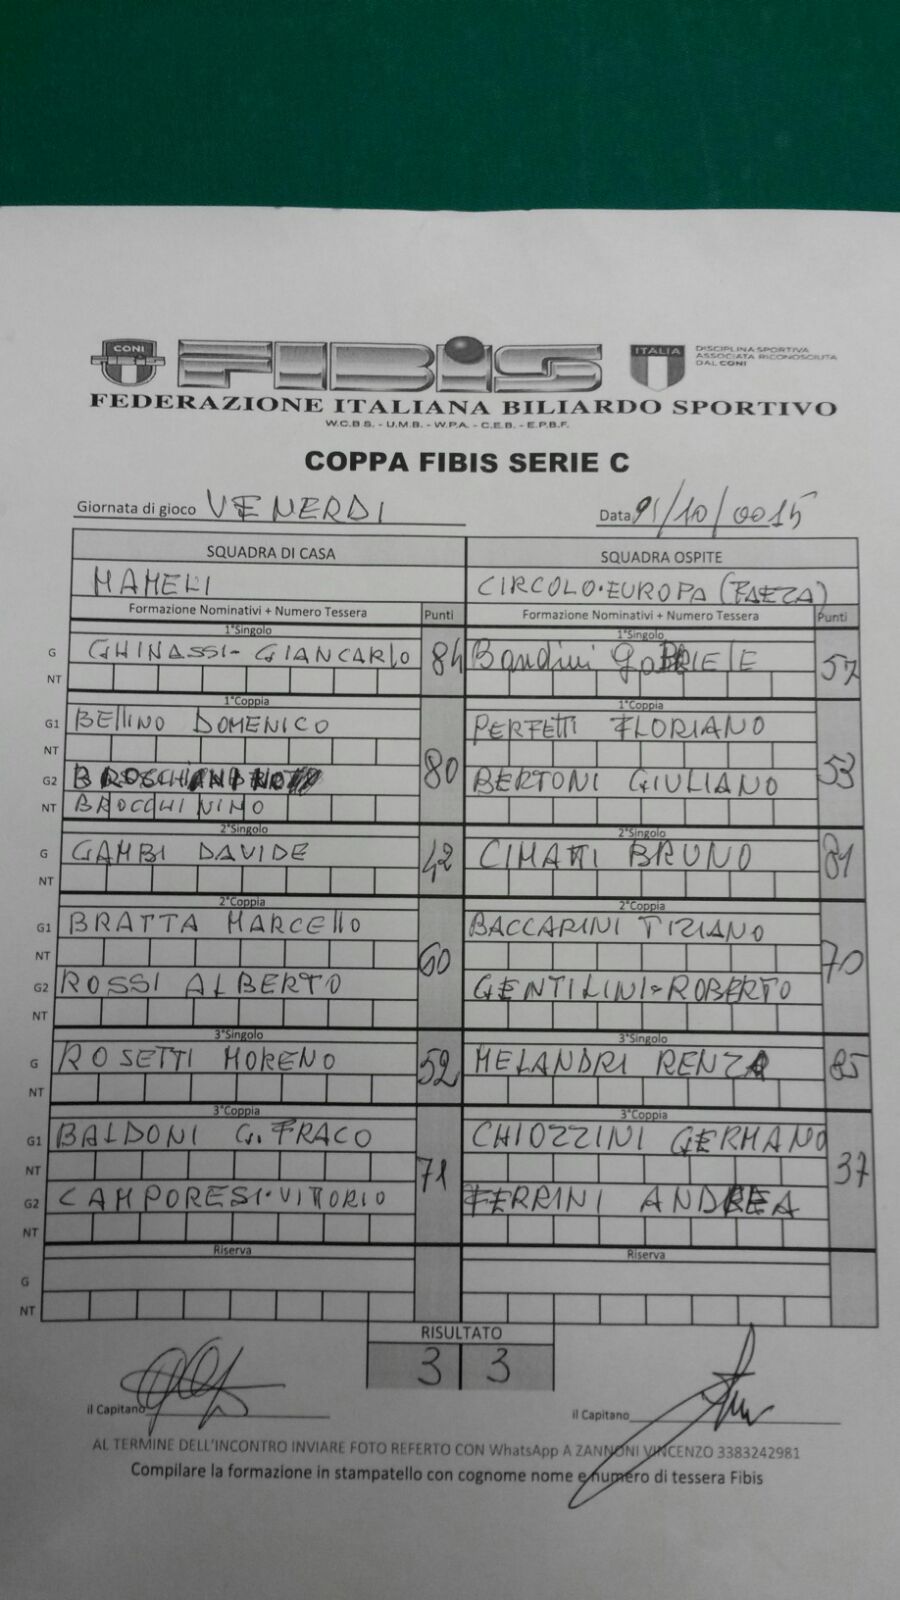 CONI
FIBiS
ITALIA
DISCIPLINA SPORTIVA
ASSOCIATA RICONOSCIUTA
DAL CONI
FEDERAZIONE ITALIANA BILIARDO SPORTIVO
W.C.B.S. - U.M.B. - W.P.A. - C.E.B. - E.P.B.F.
COPPA FIBIS SERIE C
Giornata di gioco VENERDI Data /10/0015
SQUADRA DI CASA SQUADRA OSPITE
MAMELI CIRCOLO·EUROPA (FAEZA)
Formazione Nominativi + Numero Tessera Punti Formazione Nominativi + Numero Tessera Punti
1°Singolo 1°Singolo
G GHINASSI- GIANCARLO 84 Bandini GaBRIELE 57
NT
1°Coppia 1°Coppia
G1 BEllINO DOMENICO PERFETTI FLORIANO
NT 80 53
G2 BERTONI GIULIANO
NT BROCCHI NINO
2°Singolo 2°Singolo
G GAMBI DAVIDE 42 CIMATTI BRUNO 81
NT
2°Coppia 2°Coppia
G1 BRATTA MARCEllO BACCARINI TIZIANO
NT 60 70
G2 ROSSI ALBERTO GENTILINI-ROBERTO
NT
3°Singolo 3°Singolo
G ROSETTI MORENO 52 MELANDRI RENZA 85
NT
3°Coppia 3°Coppia
G1 BALDONI G.FRACO CHIOZZINI GERMANO
NT 71 37
G2 CAMPORESI·VITTORIO FERRINI ANDREA
NT
Riserva Riserva
G
NT
RISULTATO
3 3
il Capitano il Capitano
AL TERMINE DELL'INCONTRO INVIARE FOTO REFERTO CON WhatsApp A ZANNONI VINCENZO 3383242981
Compilare la formazione in stampatello con cognome nome e numero di tessera Fibis